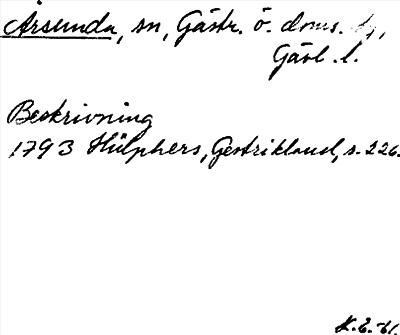 Årsunda, sn, Gästr. ö. doms.
Gävl. l.
Beskrivning
1793 Hülphers, Gestrikland, s. 226.
K.E. -61.